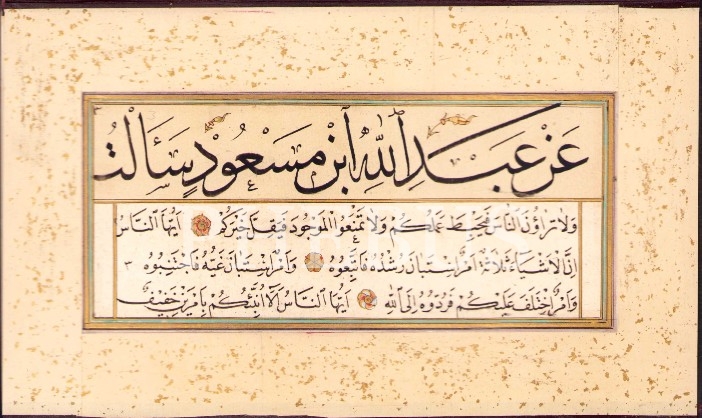 عَنْ عَبْدِ اللهِ ابْنِ مَسْعُودٍ سَأَلْتُ
وَلَا تراؤن الناسَ فَيَحْبِطَ عَمَلُكُمْ وَلَا تَمْنَعُوا الْمَوْجُودَ فَيَقِلَّ خَيْرُكُمْ أَيُّهَا النَّاسُ
إِنَّ الْأَشْيَاءَ ثَلَاثَةٌ أَمْرٌ اسْتَبَانَ رُشْدُهُ فَاتَّبِعُوهُ وَأَمْرٌ اسْتَبَانَ غَيُّهُ فَاجْتَنِبُوهُ
وَأَمْرٌ اخْتَلَفَ عَلَيْكُمْ فَرُدُّوهُ إِلَى اللهِ أَيُّهَا النَّاسُ أَلَا أُنَبِّئُكُمْ بِأَمْرَيْنِ خَفِيفٌ